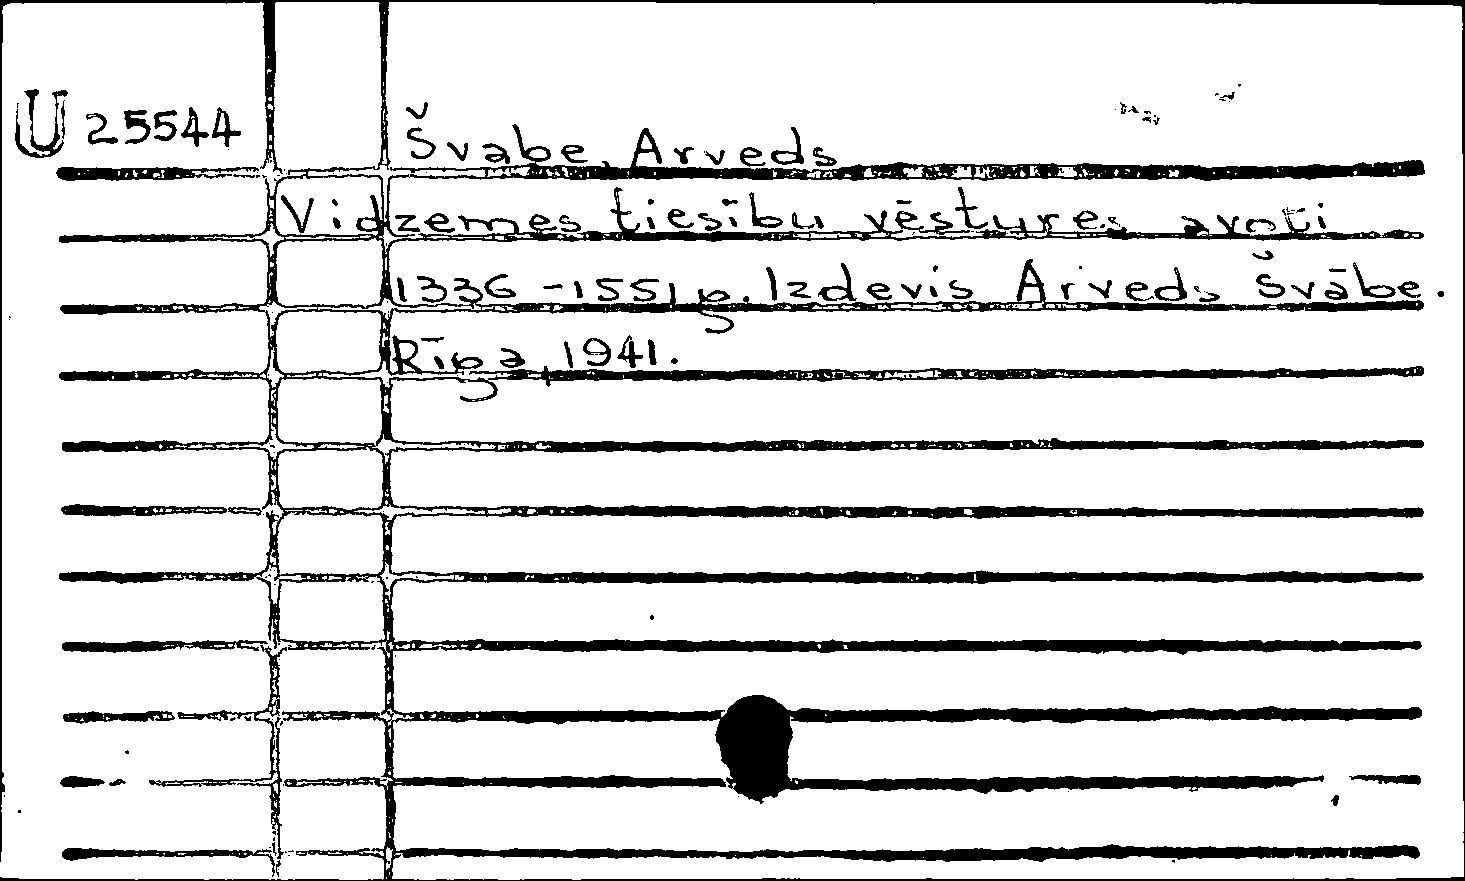 U 25544
Švabe, Arveds
Vidzemes tiesību vēstures avoti
1336-1551 g. Izdevis Arveds Švābe.
Rīga, 1941.